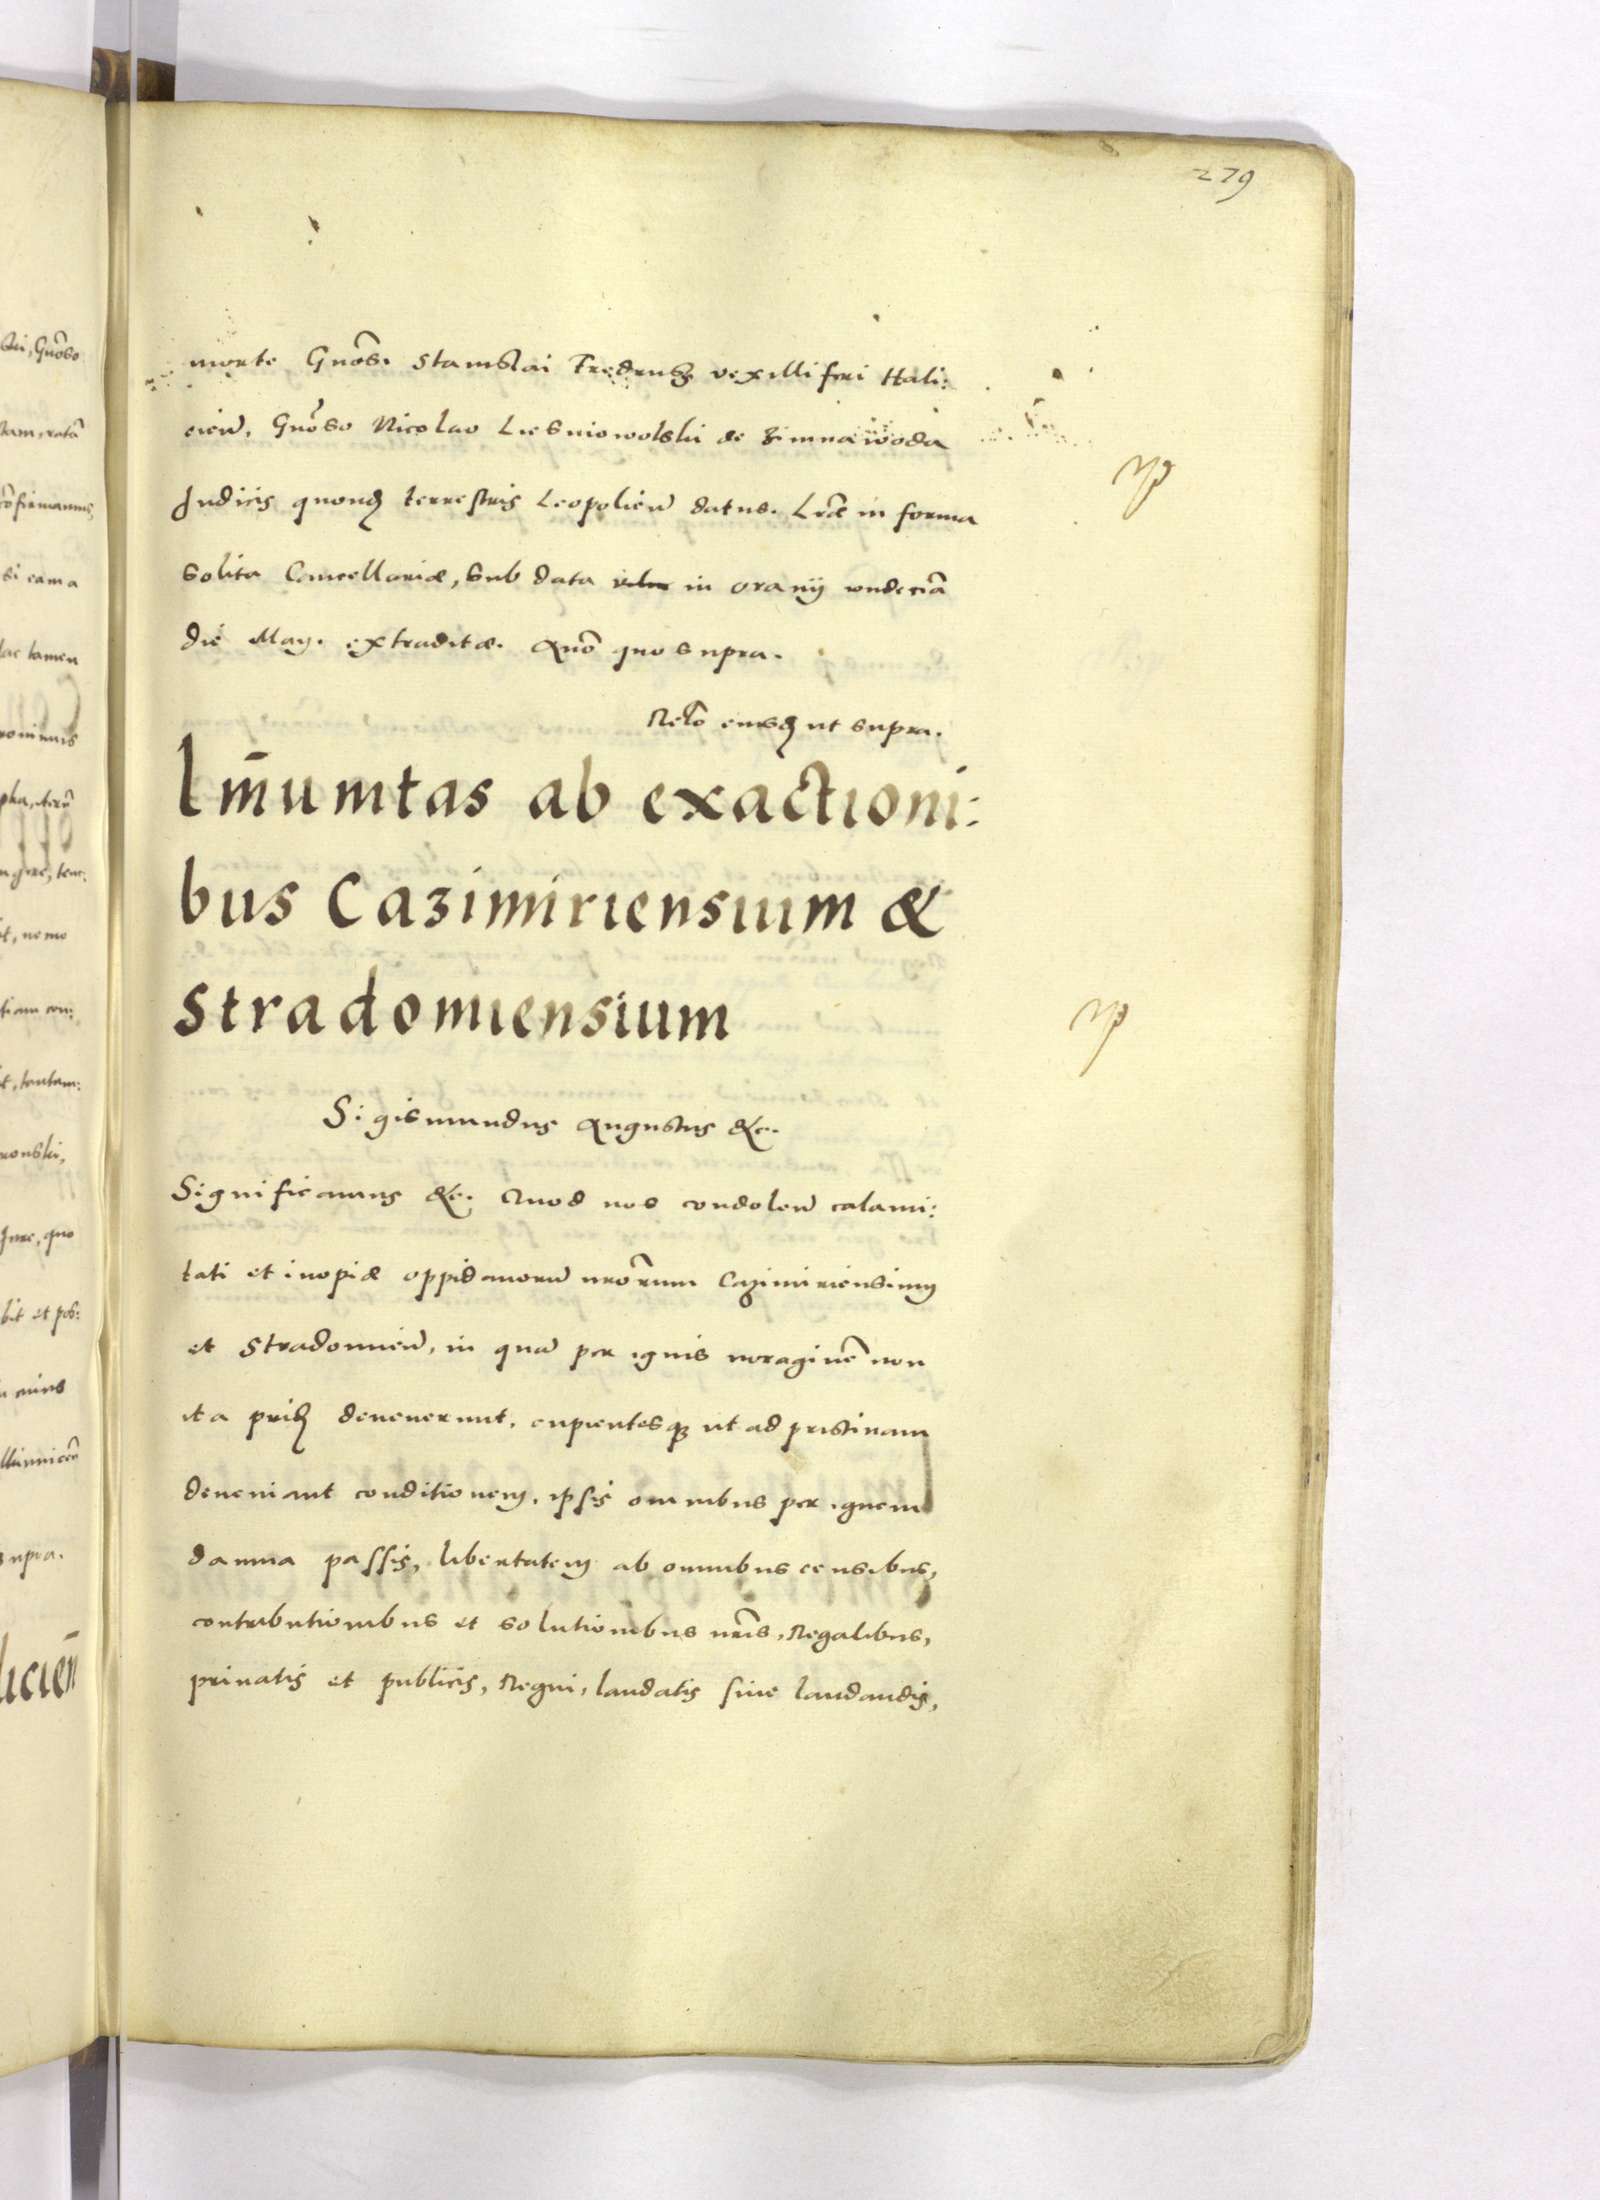 279
morte Gnõs. Stanislai Fredrus vexilliferi Hali:
cien̄, Gnõso Nicolao Liesniowolski de Zimnawoda
Judicis quond terrestris Leopolien̄ datus. Lr̃æ in forma
solita Cancellariæ, sub data in Oranij undecīa
die Maij. extraditæ. Annõ quo supra.
Relõ eiusd ut supra.
Im̄unitas ab exactioni:
bus Cazimiriensium &
Stradomiensium
Sigismundus Augustus &c.
Significamus &c. Quod nos condolen̄ calami:
tati et inopiæ oppidanorū nr̃orum Cazimiriensium
et Stradomien̄, in quā per ignis voraginē non
ita prid devenerunt, cupientesq; ut ad pristinam
deveniant conditionem, ipsis omnibus per ignem
damna passis, libertatem ab omnibus censibus,
contributionibus et solutionibus nr̃is, Regalibus,
privatis et publicis, Regni, laudatis sive laudandis,